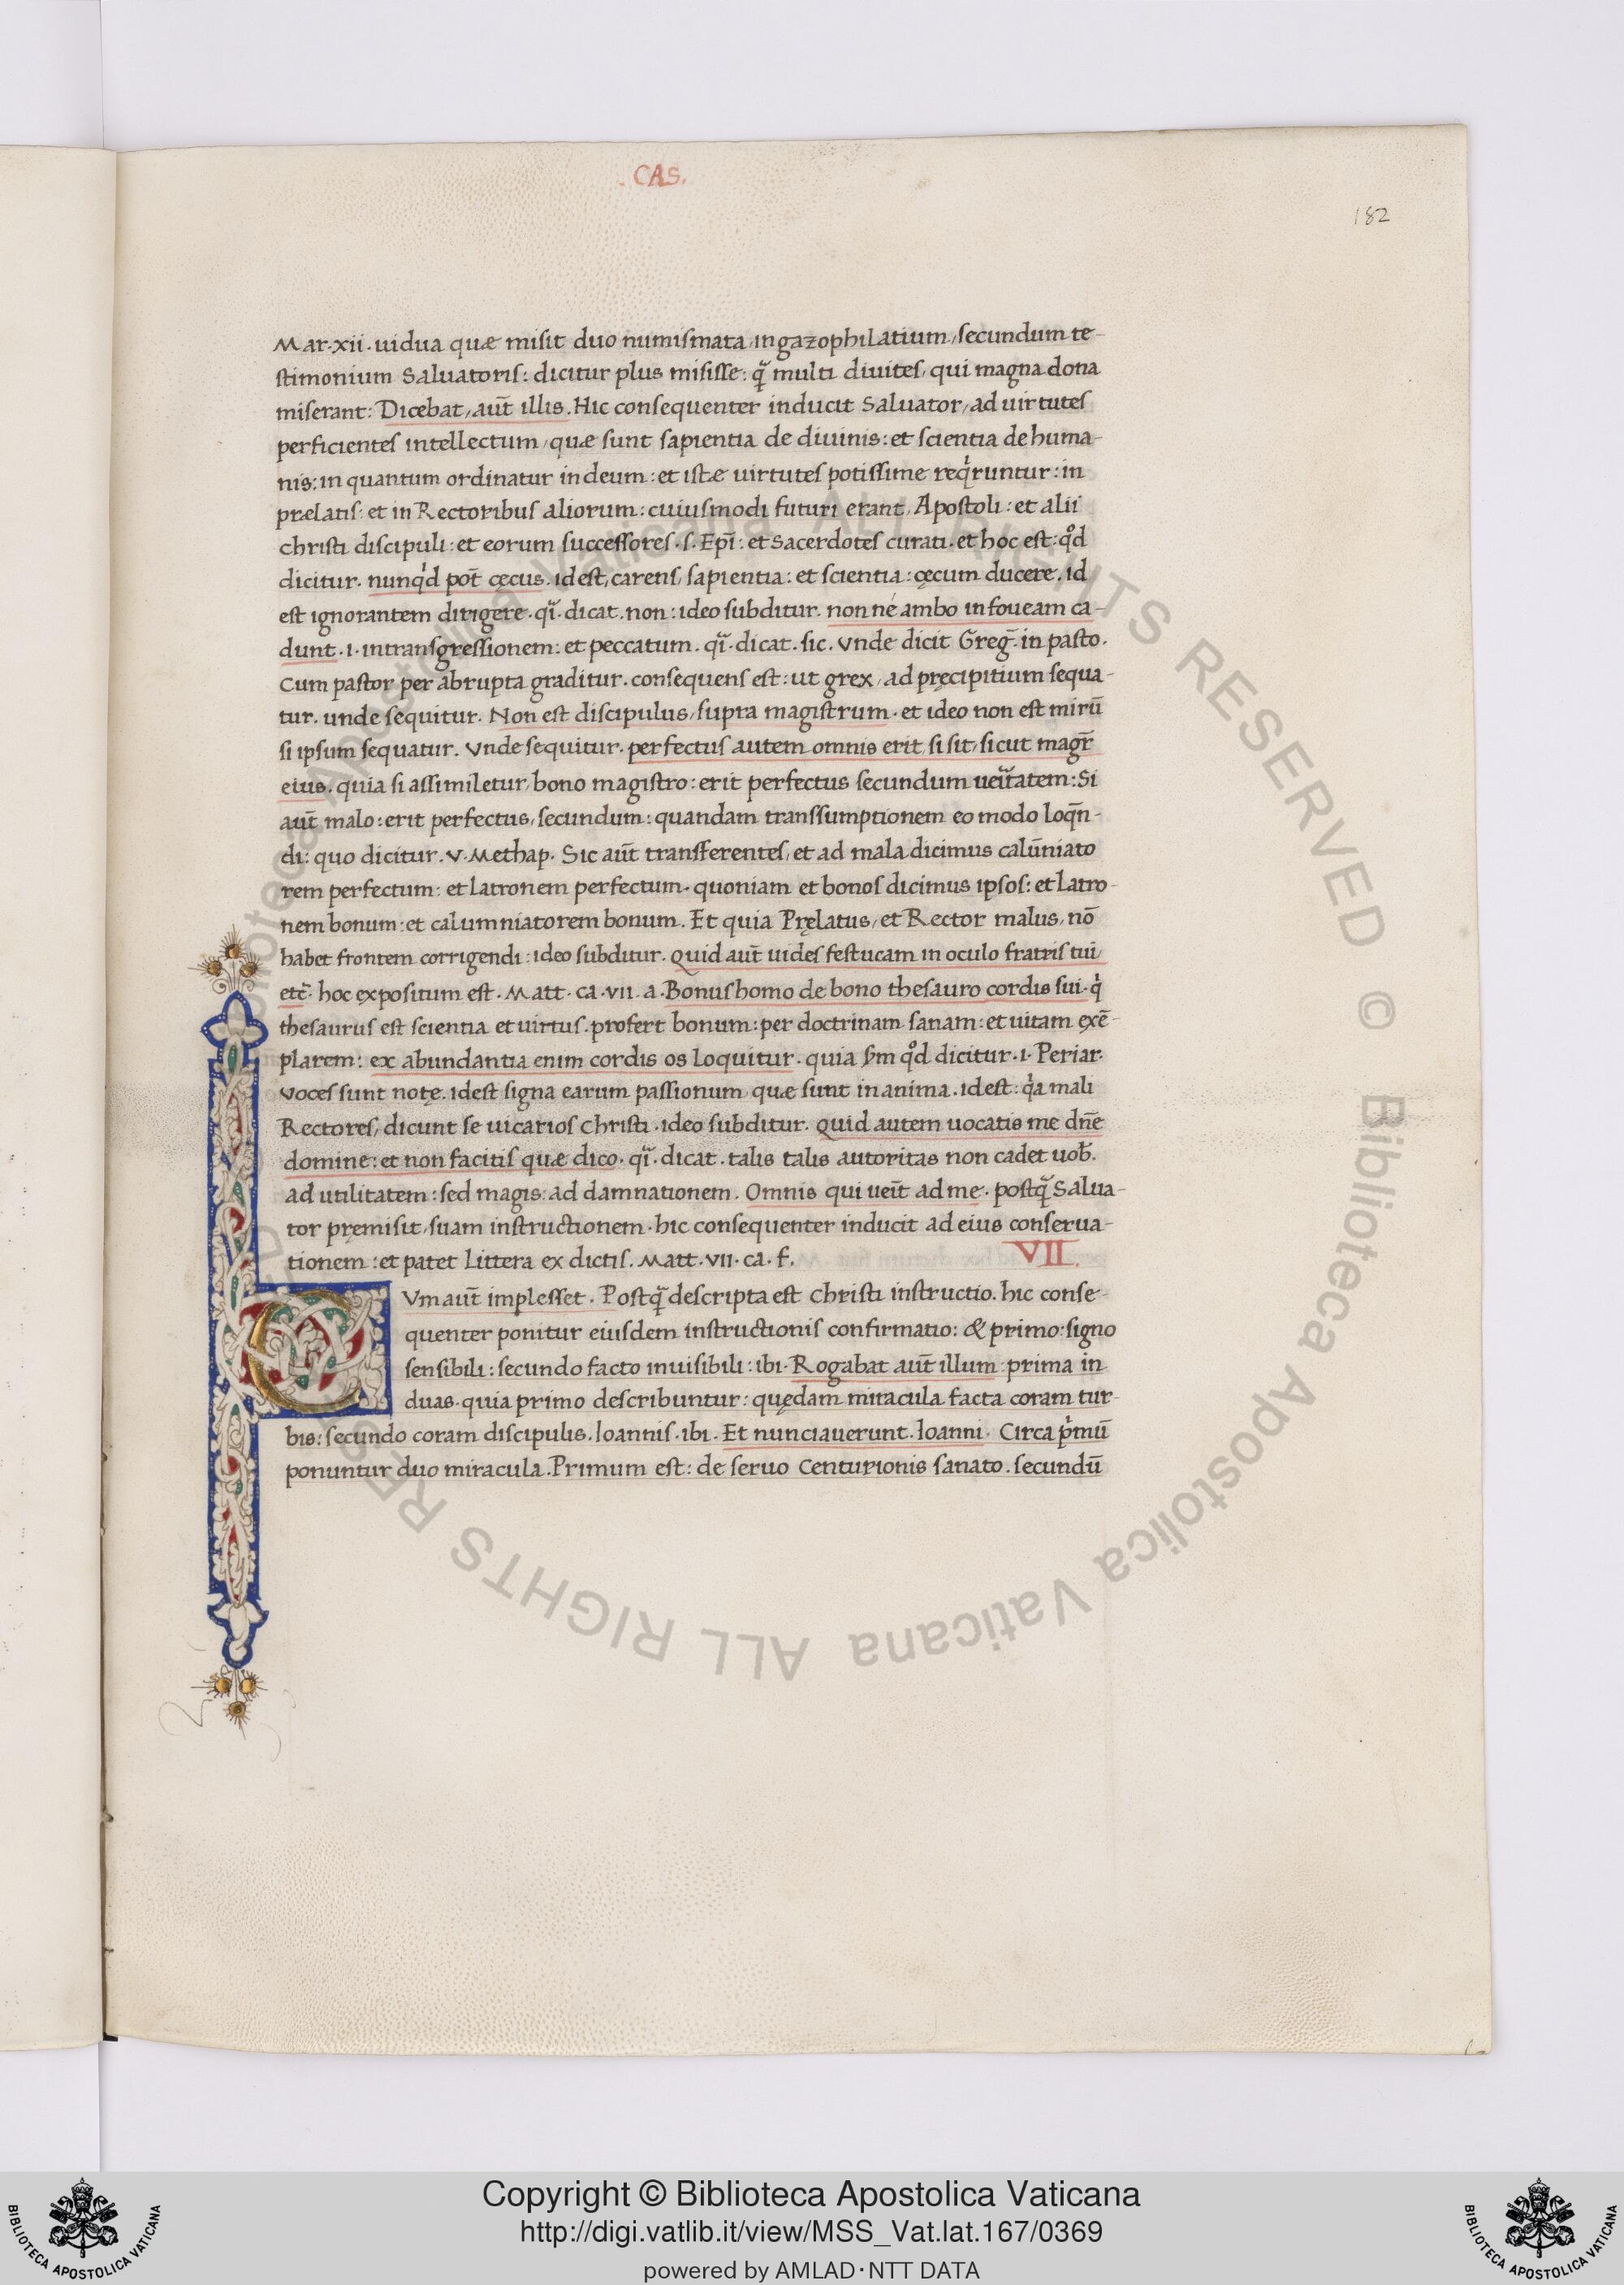 .CAS.
182
Mar·xii·uidua quæ misit duo numismata, ingazophilatium, secundum te-
stimonium Saluatoris: dicitur plus misisse: q̃ multi diuites, qui magna dona
miserant: Dicebat, aut̃ illis. Hic consequenter inducit Saluator, ad uirtutes
perficientes intellectum, quæ sunt sapientia de diuinis: et scientia de huma-
nis: in quantum ordinatur in deum: et istæ uirtutes potissime reqͥruntur: in
prælatis: et in Rectoribus aliorum: cuiusmodi futuri erant, Apostoli: et alii
christi discipuli: et eorum successores·s·Epĩ: et Sacerdotes curati. et hoc est: qͦd
dicitur. nunqͥd pot̃ cęcus. idest, carens, sapientia: et scientia: cęcum ducere. id
est ignorantem dirigere. qĩ·dicat. non: ideo subditur. non né ambo in foueam ca-
dunt·i·intransgressionem: et peccatum. qĩ·dicat. sic. Vnde dicit Greg̃ in pasto.
Cum pastor per abrupta graditur. consequens est: ut grex, ad pręcipitium sequa-
tur. unde sequitur. Non est discipulus, supra magistrum. et ideo non est mirũ
si ipsum sequatur. Vnde sequitur. perfectus autem omnis erit, si sit, sicut magr̃
eius. quia si assimiletur, bono magistro: erit perfectus secundum ueĩtatem: Si
aut̃ malo: erit perfectus, secundum: quandam transsumptionem eo modo loqñ-
di: quo dicitur. V. Methap. Sic aut̃ transferentes, et ad mala dicimus calũniato
rem perfectum: et latronem perfectum. quoniam et bonos dicimus ipsos: et latro-
nem bonum: et calumniatorem bonum. Et quia Pręlatus, et Rector malus, nõ
habet frontem corrigendi: ideo subditur. Quid aut̃ uides festucam in oculo fratris tui,
etc̃. hoc expositum est. Matt. ca. vii. a. Bonus homo de bono thesauro cordis sui. qͥ
thesaurus est scientia et uirtus. profert bonum: per doctrinam sanam: et uitam exẽ-
plarem: ex abundantia enim cordis os loquitur. quia s̃m qͦd dicitur. i. Periar.
Voces sunt notę. idest signa earum passionum, quæ sunt in anima. idest: qͥa mali
Rectores, dicunt se uicarios christi. ideo subditur. Quid autem uocatis me dñe
domine: et non facitis quæ dico. qĩ. dicat. talis talis autoritas non cadet uob̃.
ad utilitatem: sed magis: ad damnationem. Omnis qui ueit̃ ad me. postq̃ Salua-
tor pręmisit, suam instructionem. hic consequenter inducit ad eius conserua-
tionem: et patet littera ex dictis. Matt. vii. ca. f.
VII.
CVm aut̃ implesset. Postq̃ descripta est christi instructio. hic conse-
quenter ponitur eiusdem instructionis confirmatio: & primo: signo
sensibili: secundo facto inuisibili: ibi. Rogabat aut̃ illum: prima in
duas. quia primo describuntur: quędam miracula facta coram tur-
bis: secundo coram discipulis. Ioannis. ibi. Et nunciauerunt. Ioanni. Circa pͥmũ
ponuntur duo miracula. Primum est: de seruo Centurionis sanato. secundũ
Copyright © Biblioteca Apostolica Vaticana
http://digi.vatlib.it/view/MSS_Vat.lat.167/0369
powered by AMLAD·NTT DATA
BIBLIOTECA APOSTOLICA VATICANA
BIBLIOTECA APOSTOLICA VATICANA
Biblioteca Apostolica Vaticana ALL RIGHTS RESERVED © Biblioteca Apostolica Vaticana ALL RIGHTS RESERVED ©